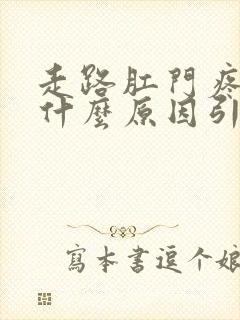 走路肛門疼
什麼原因引
寫本書逗个娘